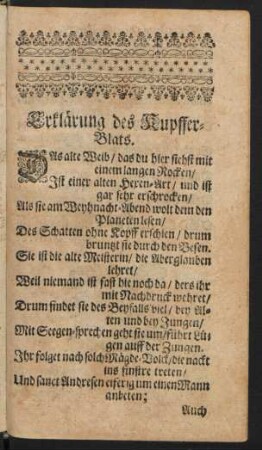 Erklärung des Kupffer-
Blats.
DAs alte Weib / das du hier siehst mit
einem langen Rocken /
Ist einer alten Hexen-Art / und ist
gar sehr erschrocken /
Als sie am Weyhnacht-Abend wolt dem den
Planeten lesen /
Des Schatten ohne Kopff erschien / drum
bruntzt sie durch den Besen.
Sie ist die alte Meisterin / die Aberglauben
lehret /
Weil niemand ist fast die noch da / ders ihr
mit Nachdruck wehret /
Drum findet sie des Beyfalls viel / bey Al-
ten und bey Jungen /
Mit Seegen-sprechen geht sie um / führt Lü-
gen auff der Zungen.
Ihr folget nach solch Mägde-Volck / die nackt
ins finstre treten /
Und sanct Andresen eiferig um einen Mann
anbeten;
Auch